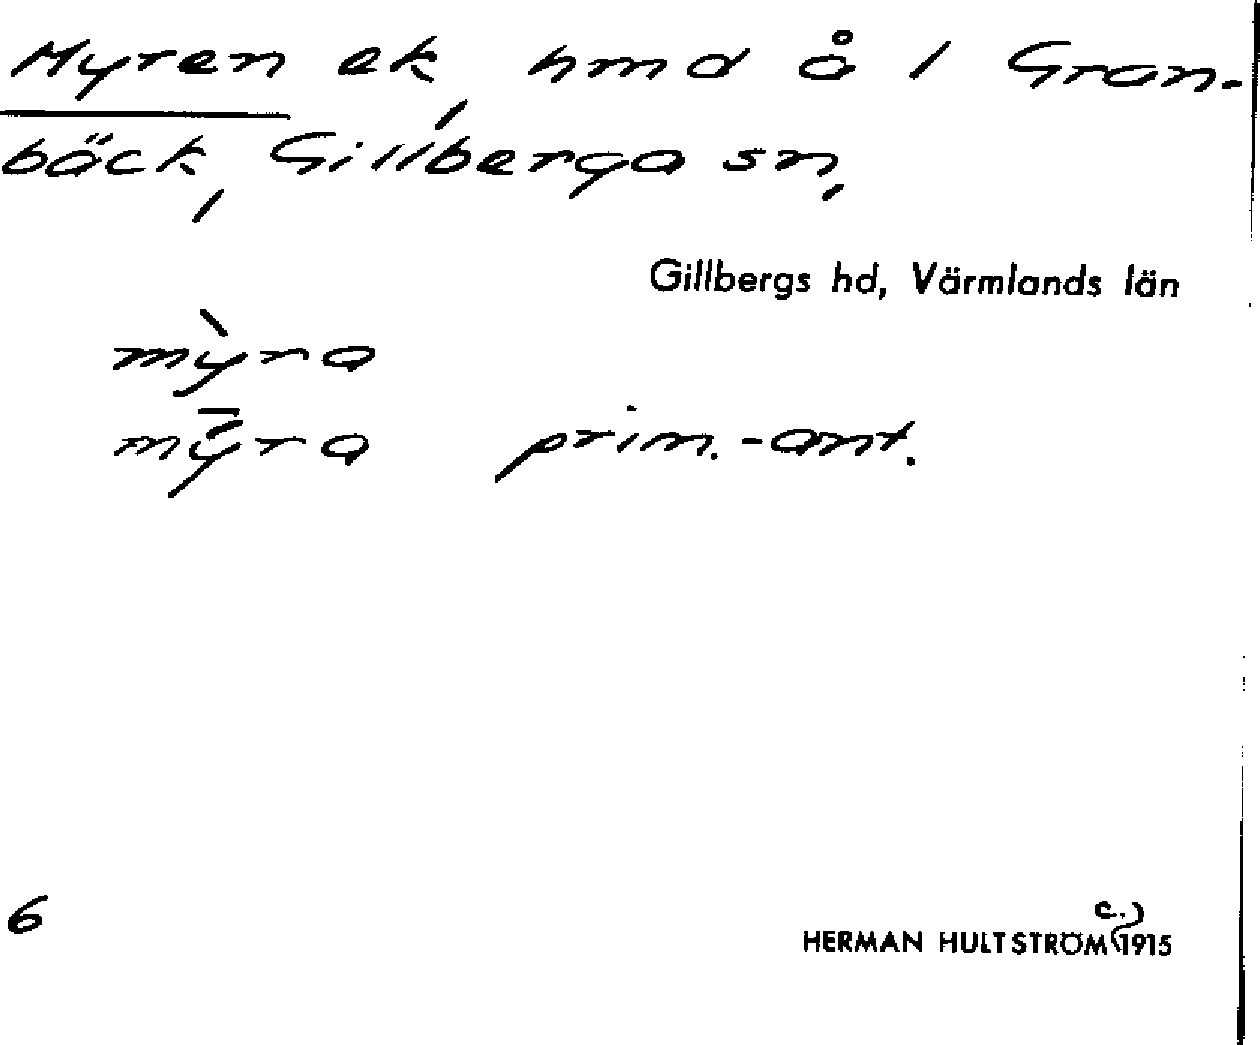 Myren ek, hmd å 1 Gran-
bäck, Gillberga sn,
Gillbergs hd, Värmlands län
mỳra
mȳra prim.-ant.
6
c.
HERMAN HULTSTRÖM 1915